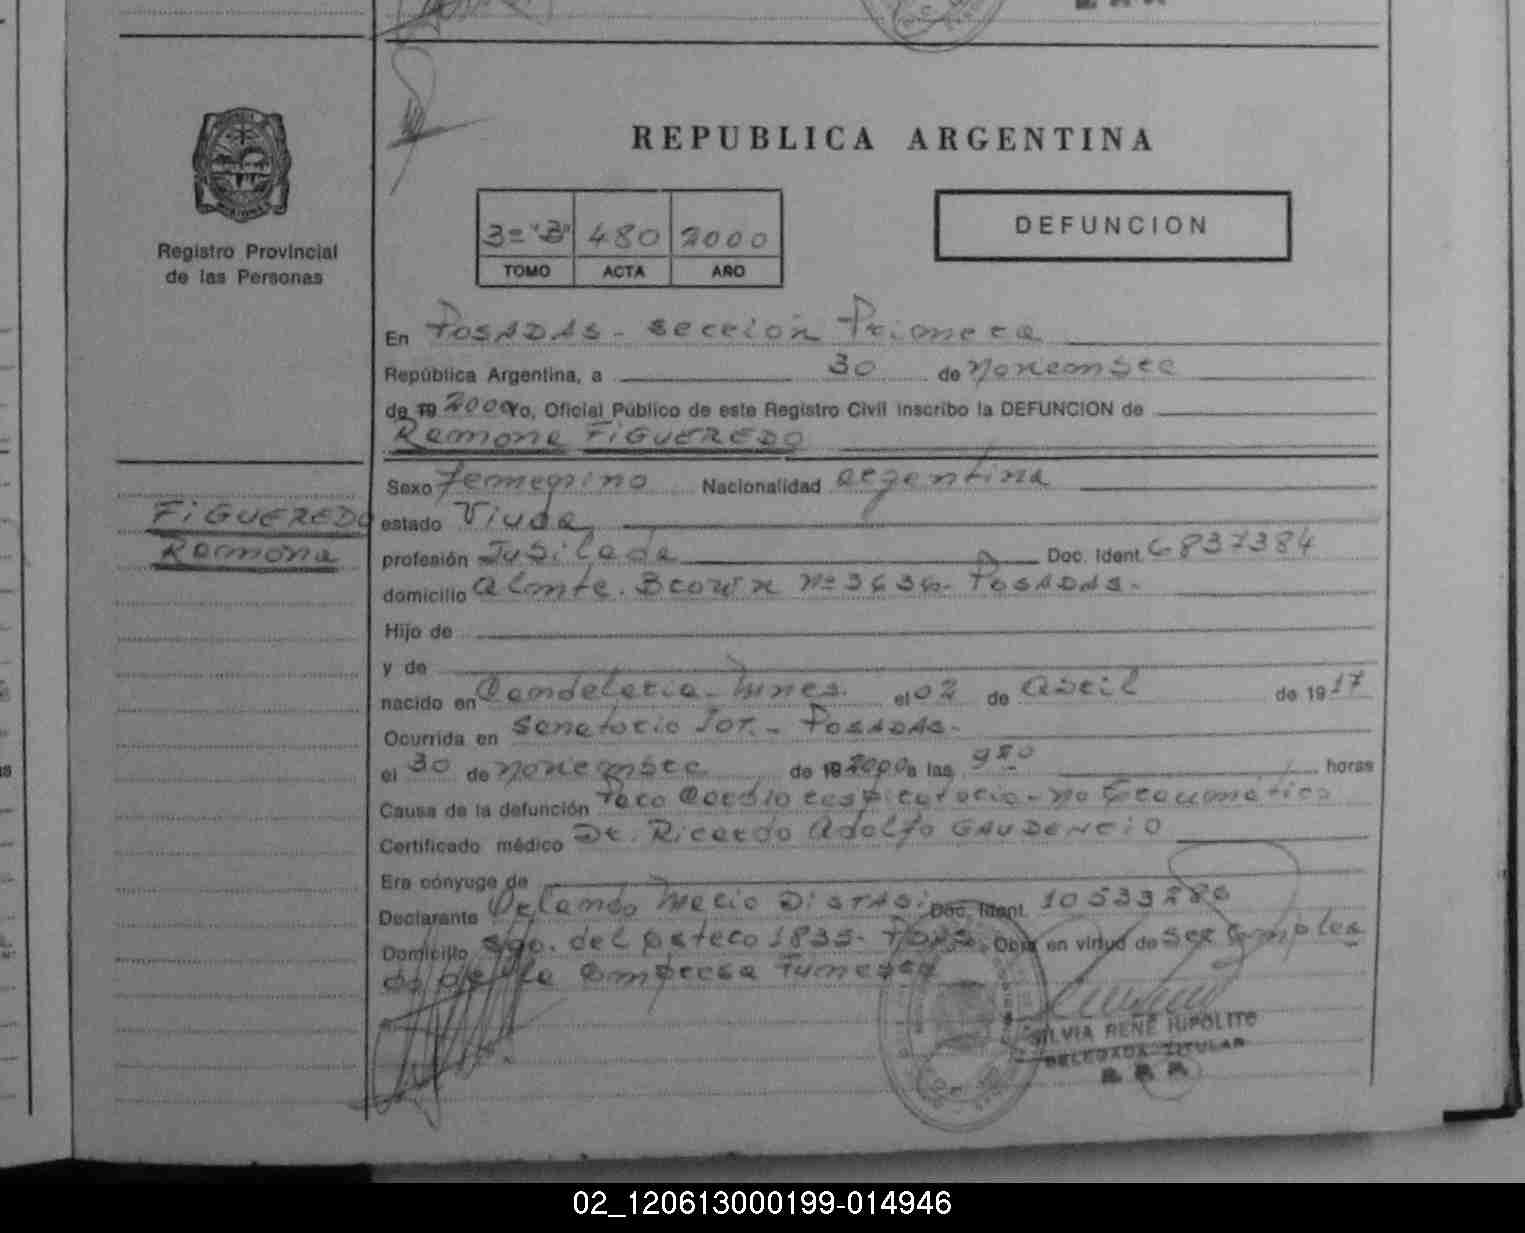 REPUBLICA ARGENTINA
Registro Provincial
de las Personas
3º "B" 480 2000
TOMO ACTA AÑO
DEFUNCION
En POSADAS - sección Primera
República Argentina, a 30 de Noviembre
de 19 2000 Yo, Oficial Público de este Registro Civil inscribo la DEFUNCION de
Ramona FIGUEREDO
FIGUEREDO
Ramona
Sexo femenino Nacionalidad argentina
estado Viuda
profesión Jubilada Doc. Ident. 6837384
domicilio Almte. Brown Nº 3636 - POSADAS -
Hijo de
y de
nacido en Candelaria - Mnes. el 02 de abril de 1917
Ocurrida en Sanatorio IOT. - POSADAS -
el 30 de Noviembre de 19 2000 a las 9 horas
Causa de la defunción Paro Cardiorespiratorio - no traumático
Certificado médico Dr. Ricardo Adolfo GAUDENCIO
Era cónyuge de
Declarante Orlando Mario DISTASI Doc. Ident. 10533286
Domicilio Sgo. del estero 1835 - Obra en virtud de ser emplea
do de la empresa funebre
SILVIA RENÉ HIPÓLITO
DELEGADA TITULAR
02_120613000199-014946